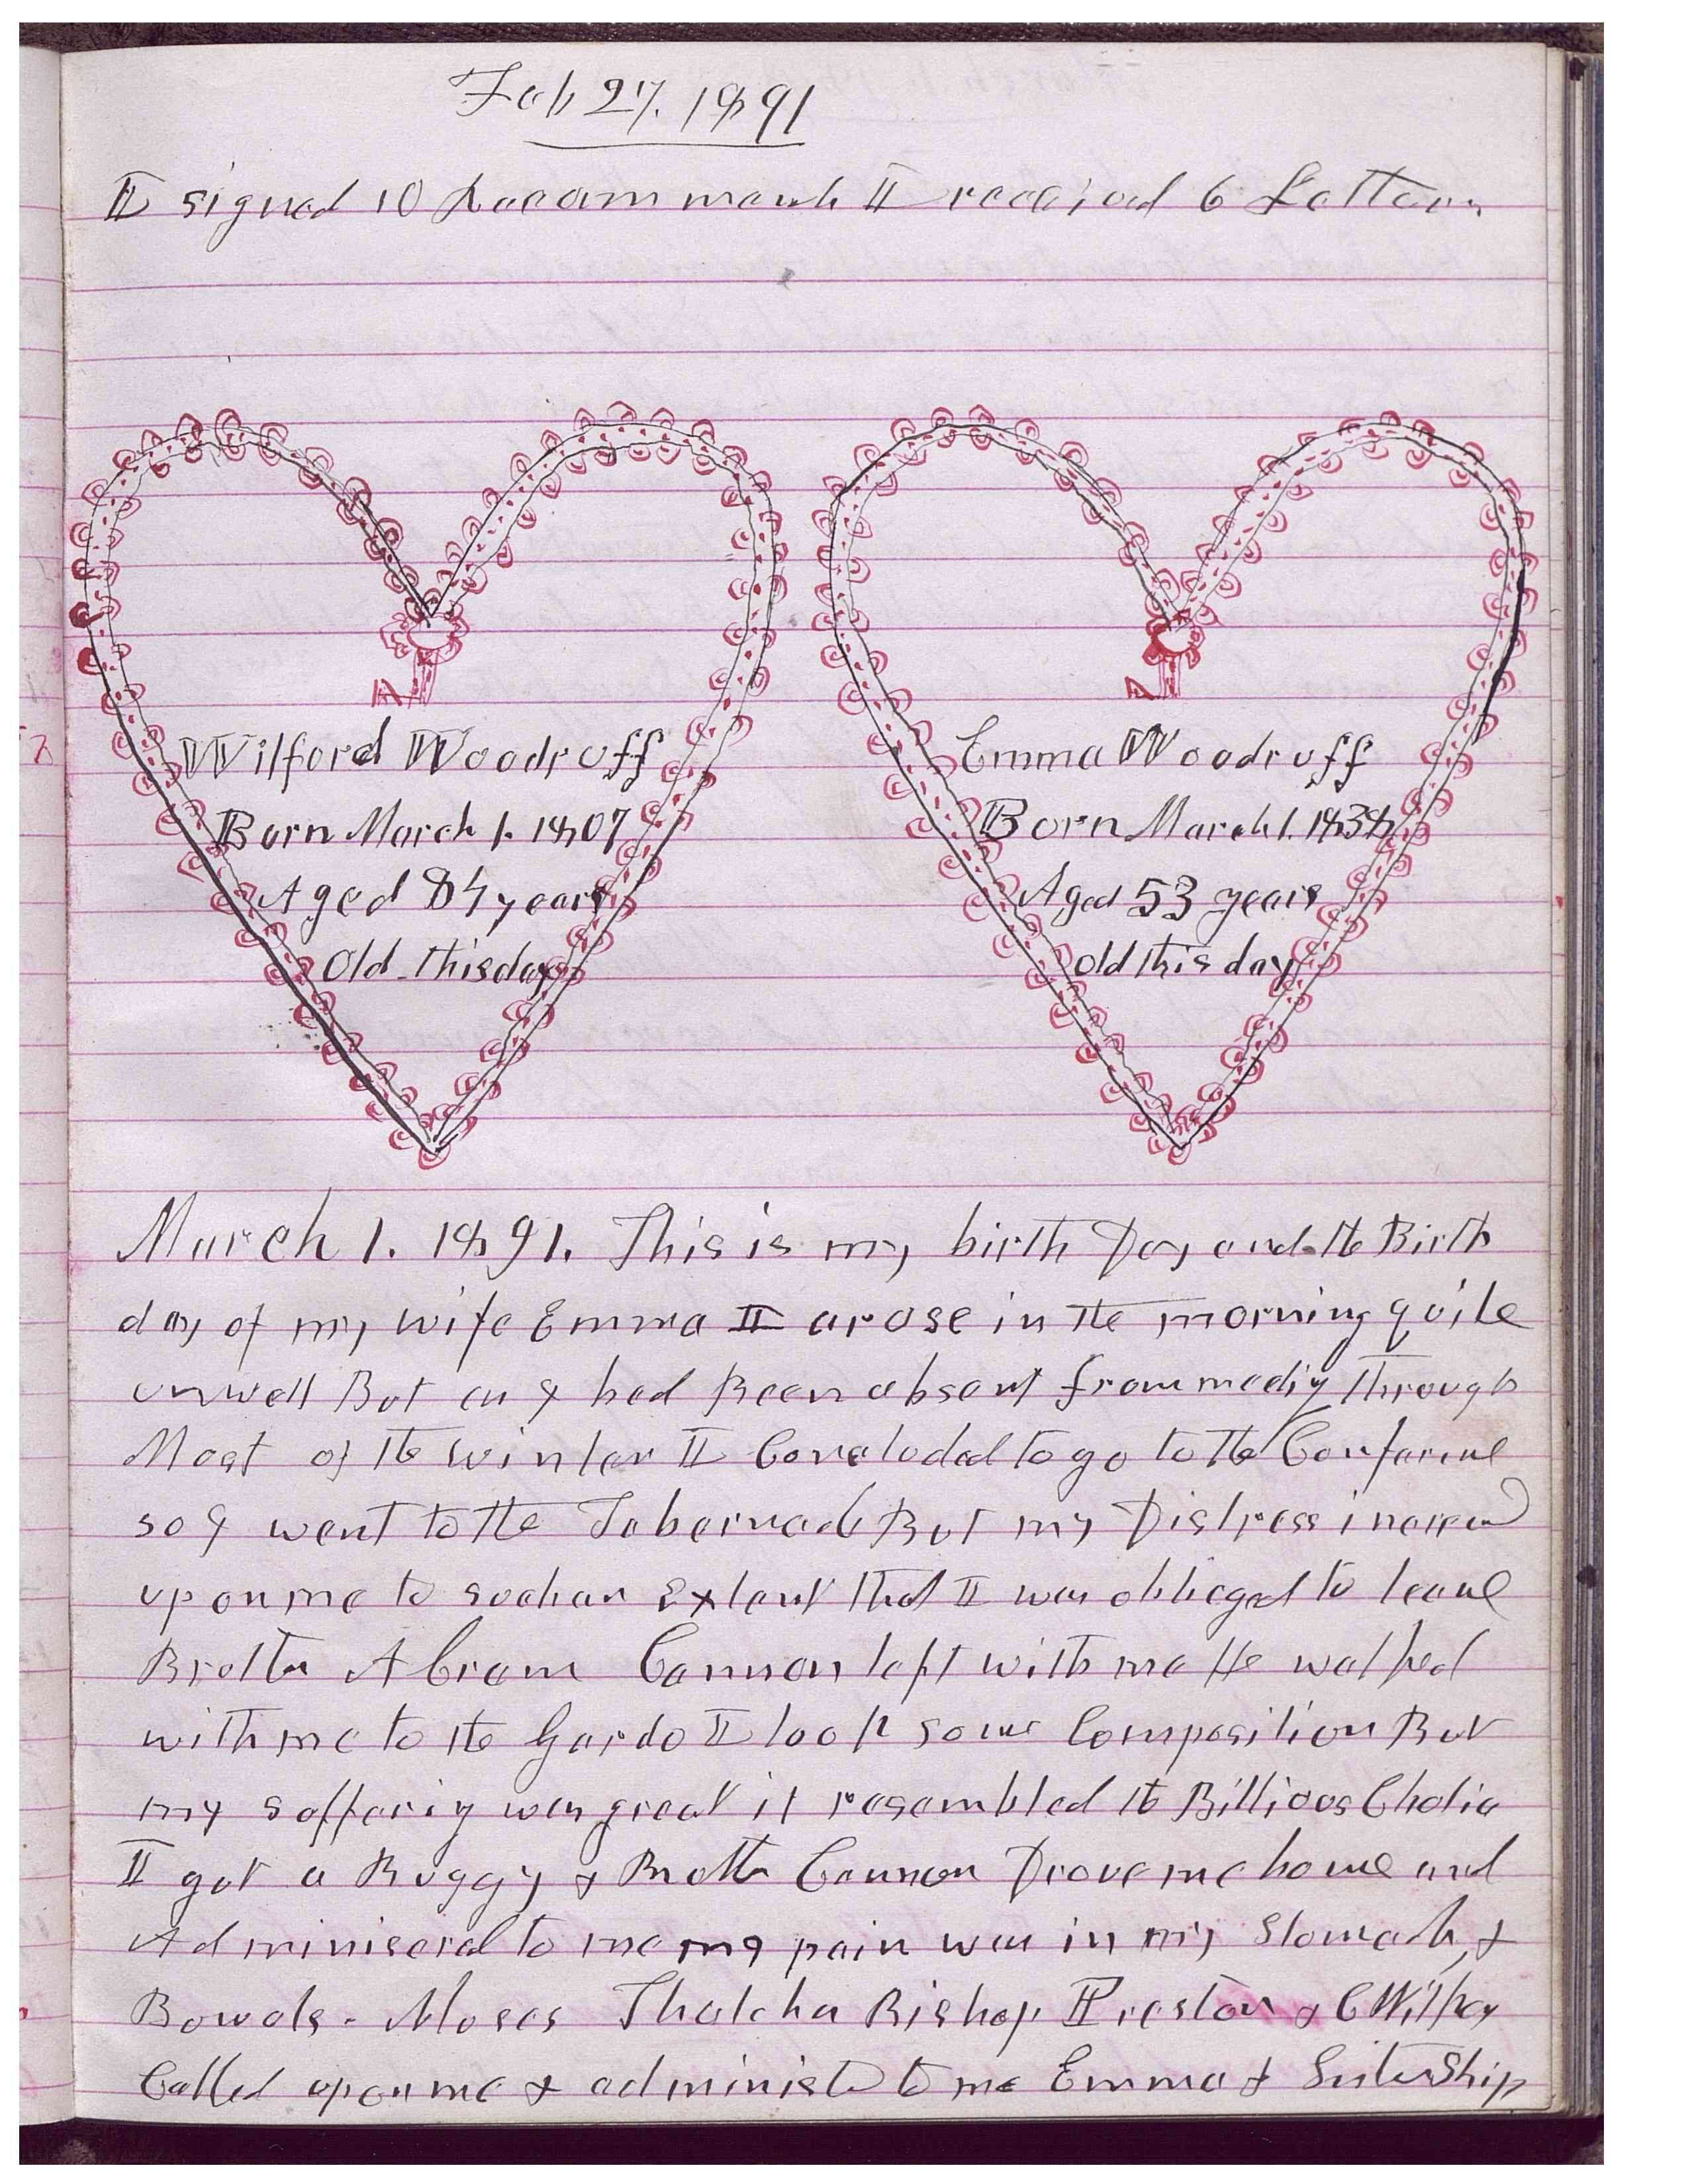 Feb 27, 1891
I signed 10 Recommends I received 6 Letters
Wilford Woodruff
Born March 1. 1807
Aged 84 years
Old this day
Emma Woodruff
Born March 1. 1838
Aged 53 years
old this day
March 1. 1891. This is my birth Day and the Birth
day of my wife Emma I arose in the morning quite
unwell But as I had Been absent from meeting through
Most of the winter I Concluded to go to the Conference
so I went to the Tabernacle But my Distress increased
upon me to such an Extent that I was oblieged to leave
Brother Abram Cannon left with me He walked
with me to the Gardo I took some Composition But
my suffering was great it resembled the Billious Cholic
I got a Buggy & Brother Cannon Drove me home and
Adminisered to me my pain was in my Stomach &
Bowels - Moses Thatcher Bishop Preston & C Wilkey
Called upon me & administed to me Emma & Sister Ship